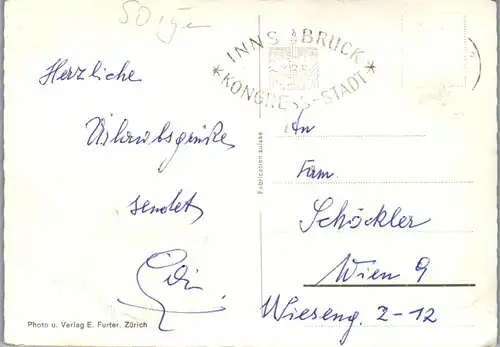 50 ige
INNSBRUCK
* KONGRESS-STADT *
Herzliche
Urlaubsgrüße
sendet
Edi.
An
Fam.
Schöckler
Wien 9
Wieseng. 2-12
Fabrication suisse
Photo u. Verlag E. Furter. Zürich